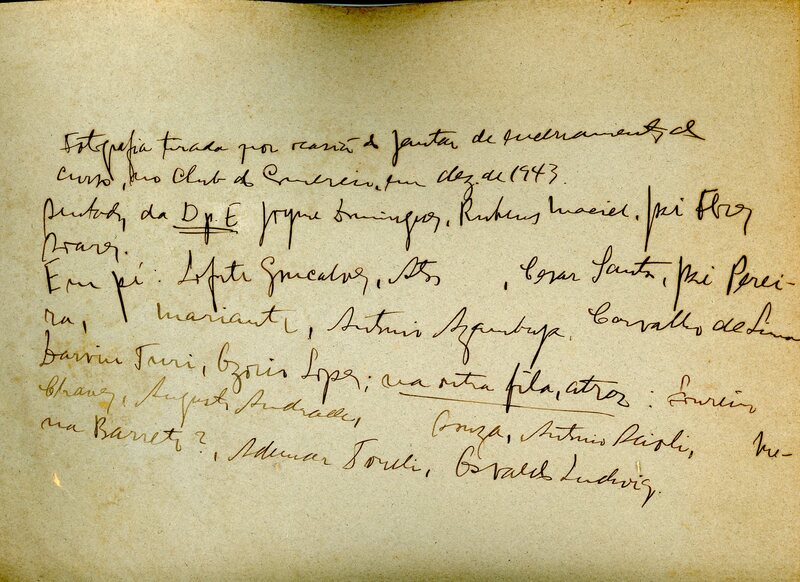 Fotografia tirada por ocasiã do jantar de encerramento do
curso, no Club do Comércio, em dez. de 1943.
Sentados, da D p. E Jayme Domingues, Rubens Maciel, José Flores
Soares.
Em pé: Lofite Gonçalves, , Cesar Santos, José Perei-
ra, Mariante, Antonio Azambuja, Carvalho de Lima
Darvin Turi, Ozorio Lopes; na outra fila, atraz: Loureiro
Chaves, Augusto Andrade, Souza, Antonio Acioli,
na Barreto?, Ademar Torelli, Osvaldo Ludwig.